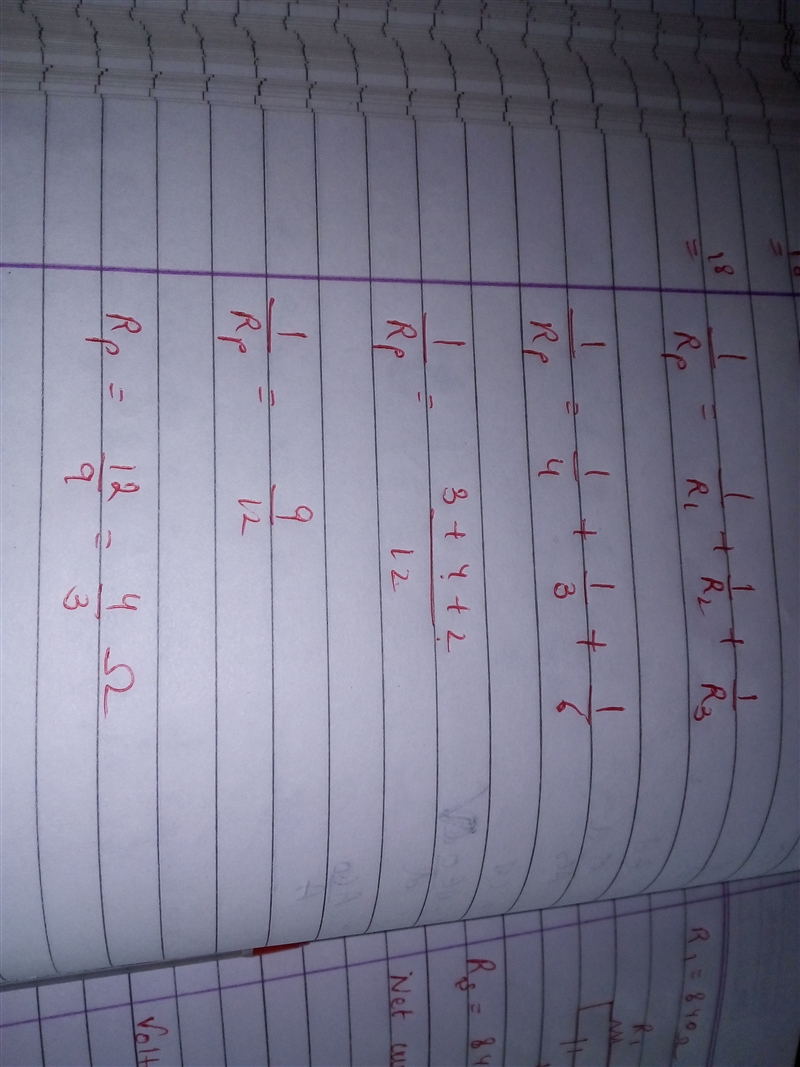 18 =
1/Rp = 1/R1 + 1/R2 + 1/R3
1/Rp = 1/4 + 1/3 + 1/6
1/Rp = 3 + 4 + 2 / 12
1/Rp = 9/12
Rp = 12/9 = 4/3 Ω
R1 = 840Ω
R1
Net
Volt